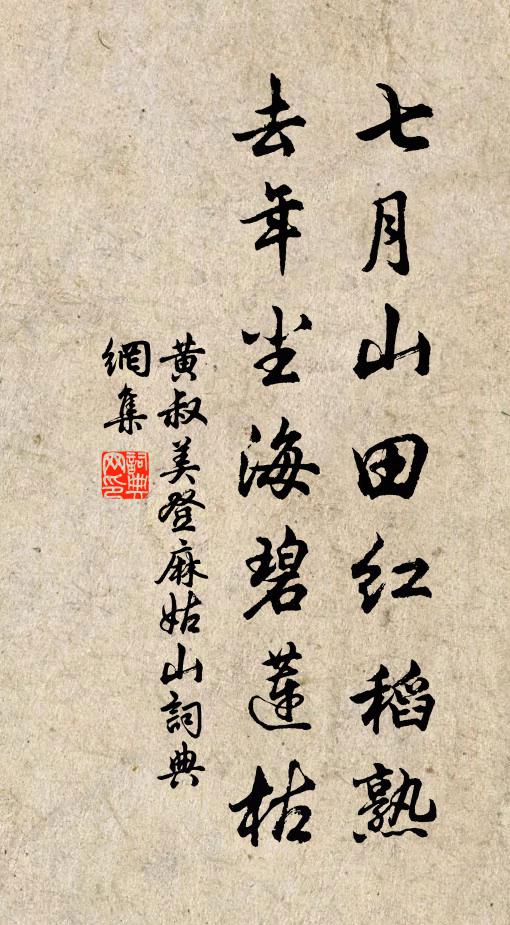 七月山田红稻熟
去年尘海碧莲枯
黄叔美登麻姑山詞典
網集
詞典
网印